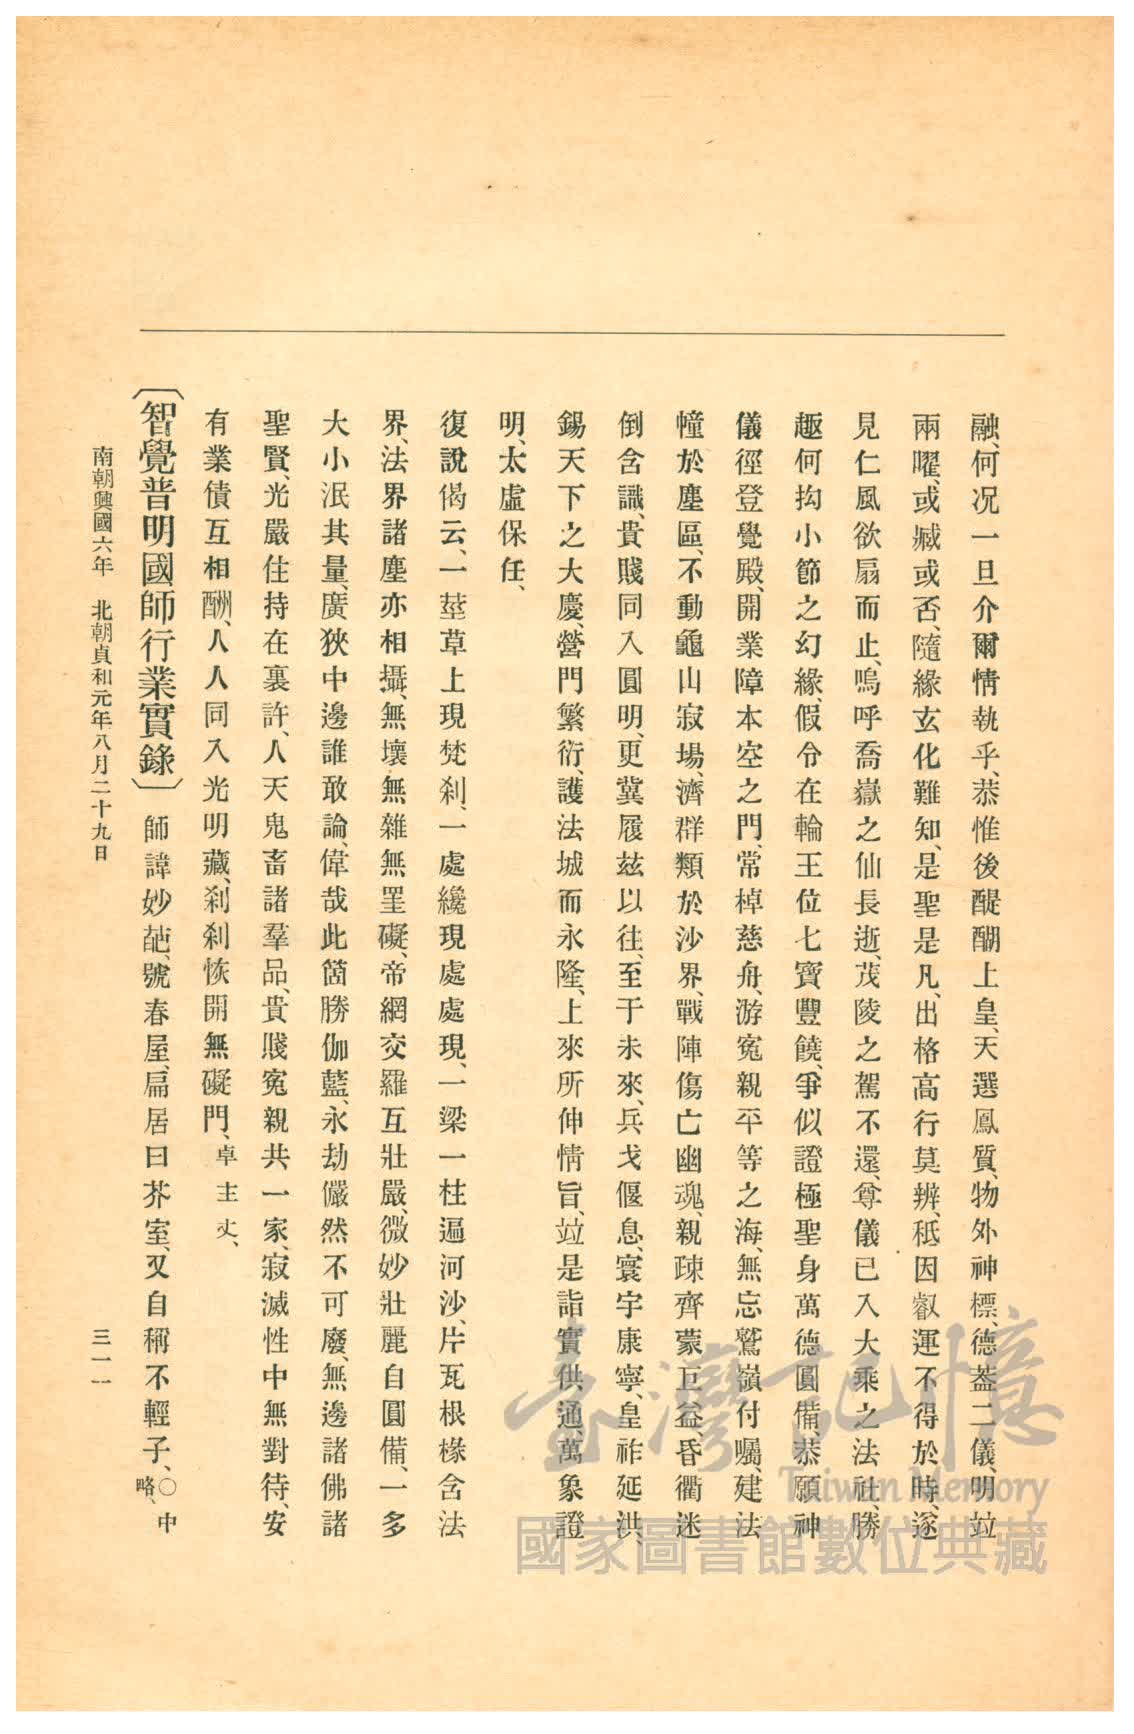 融、何況一旦介爾情執乎、恭惟後醍醐上皇、天選鳳質、物外神標、德蓋二儀、明竝
兩曜、或臧或否、隨緣玄化難知、是聖是凡、出格高行莫辨、秪因叡運不得於時、遂
見仁風欲扇而止、嗚呼喬嶽之仙長逝、茂陵之駕不還、尊儀已入大乘之法社、勝
趣何拘小節之幻緣、假令在輪王位七寶豐饒、爭似證極聖身萬德圓備、恭願神
儀徑登覺殿、開業障本空之門、常棹慈舟、游寃親平等之海、無忘鷲嶺付囑、建法
幢於塵區、不動龜山寂場、濟群類於沙界、戰陣傷亡幽魂、親疎齊蒙巨益、昏衢迷
倒含識、貴賤同入圓明、更冀履玆以往、至于未來、兵戈偃息、寰宇康寧、皇祚延洪、
錫天下之大慶、營門繁衍、護法城而永隆、上來所伸情旨、竝是詣實供通、萬象證
明、太虛保任、
復說偈云、一莖草上現梵刹、一處纔現處處現、一梁一柱遍河沙、片瓦根椽含法
界、法界諸塵亦相攝、無壞無雜無罣礙、帝網交羅互壯嚴、微妙壯麗自圓備、一多
大小泯其量、廣狹中邊誰敢論、偉哉此箇勝伽藍、永劫儼然不可廢、無邊諸佛諸
聖賢、光嚴住持在裏許、人天鬼畜諸羣品、貴賤寃親共一家、寂滅性中無對待、安
有業債互相酬、人人同入光明藏、刹刹恢開無礙門、卓主丈、
〔智覺普明國師行業實錄〕師諱妙葩、號春屋、扁居曰芥室、又自稱不輕子、〇中略、
南朝興國六年 北朝貞和元年八月二十九日
三一一
臺灣記憶
Taiwan Memory
國家圖書館數位典藏